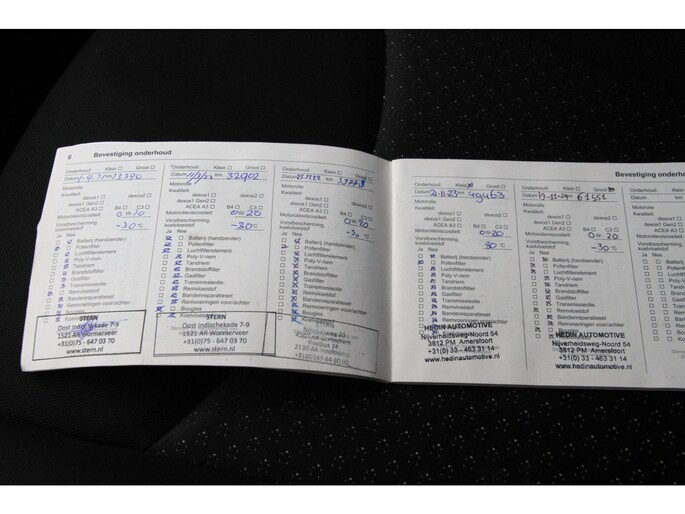 6
Bevestiging onderhoud
Onderhoud: Klein Groot
Datum km
Motorolie
Kwaliteit:
dexos1 dexos2
dexos1 Gen2
ACEA A3 B4 C3
Motorolieviscositeit:
0W-20
Vorstbescherming,
koelvloeistof -30°C
Ja Nee
Batterij (handzender)
Pollenfilter
Luchtfilterelement
Poly-V-riem
Tandriem
Brandstoffilter
Gasfilter
Transmissieolie
Remvloeistof
Bandenreparatieset
Remvoeringen voor/achter
STERN
Oost Indischekade 7-9
1521 AR Wormerveer
+31(0)75 - 647 03 70
www.stern.nl
Onderhoud: Klein Groot
Datum km 32902
Motorolie
Kwaliteit:
dexos1 dexos2
dexos1 Gen2
ACEA A3 B4 C3
Motorolieviscositeit: 0W-20
Vorstbescherming,
koelvloeistof -30°C
Ja Nee
Batterij (handzender)
Pollenfilter
Luchtfilterelement
Poly-V-riem
Tandriem
Brandstoffilter
Gasfilter
Transmissieolie
Remvloeistof
Bandenreparatieset
Remvoeringen voor/achter
Bougies
STERN
Oost Indischekade 7-9
1521 AR Wormerveer
+31(0)75 - 647 03 70
www.stern.nl
Onderhoud: Klein Groot
Datum km
Motorolie
Kwaliteit:
dexos1 dexos2
dexos1 Gen2
ACEA A3 B4 C3
Motorolieviscositeit:
0W-20
Vorstbescherming,
koelvloeistof -30°C
Ja Nee
Batterij (handzender)
Pollenfilter
Luchtfilterelement
Poly-V-riem
Tandriem
Brandstoffilter
Gasfilter
Transmissieolie
Remvloeistof
Bandenreparatieset
Remvoeringen voor/achter
Bougies
Postbus 24
2130 AA
Bevestiging onderho
Onderhoud: Klein Groot
Datum 21-11-23 km 49463
Motorolie
Kwaliteit:
dexos1 dexos2
dexos1 Gen2
ACEA A3 B4 C3
Motorolieviscositeit:
0W-20
Vorstbescherming,
koelvloeistof
30°C
Ja Nee
Batterij (handzender)
Pollenfilter
Luchtfilterelement
Poly-V-riem
Tandriem
Brandstoffilter
Gasfilter
Transmissieolie
Remvloeistof
Bandenreparatieset
Remvoeringen voor/achter
Bougies
HEDIN AUTOMOTIVE
Nijverheidsweg-Noord 54
3812 PM Amersfoort
+31(0) 33 - 463 31 14
www.hedinautomotive.nl
Onderhoud: Klein Groot
Datum 19-11-24 61551
Motorolie
Kwaliteit:
dexos1 dexos2
dexos1 Gen2
ACEA A3 B4 C3
Motorolieviscositeit:
0W-20
Vorstbescherming,
koelvloeistof -30°C
Ja Nee
Batterij (handzender)
Pollenfilter
Luchtfilterelement
Poly-V-riem
Tandriem
Brandstoffilter
Gasfilter
Transmissieolie
Remvloeistof
Bandenreparatieset
Remvoeringen voor/achter
Bougies
HEDIN AUTOMOTIVE
Nijverheidsweg-Noord 54
3812 PM Amersfoort
+31(0) 33 - 463 31 14
www.hedinautomotive.nl
Onderhoud: Klein
Datum km
Motorolie
Kwaliteit:
Ja Nee